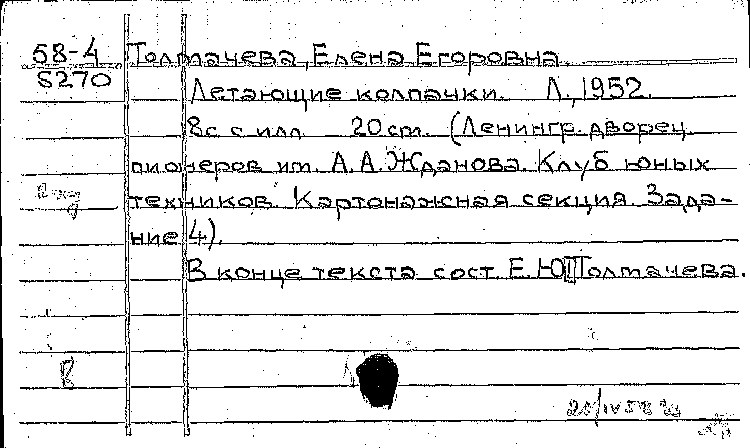 58-4 Толмачева, Елена Егоровна.
5270
Летающие колпачки. Л., 1952.
8с с илл 20 cm. (Ленингр. дворец
пионеров им. А. А. Жданова. Клуб юных
техников. Картонажная секция. Зада-
ние 4).
В конце текста сост. Е. Ю Толмачева.
В
20/IV 58